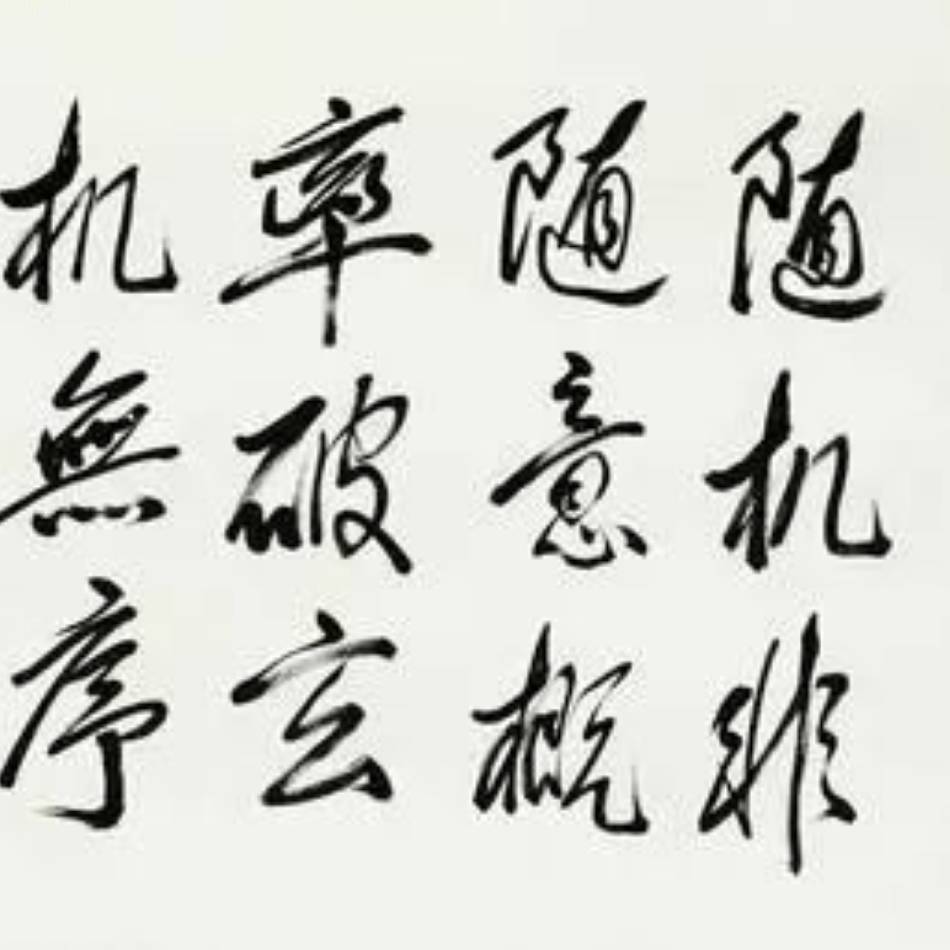 随机非
随意概
率破玄
机無序